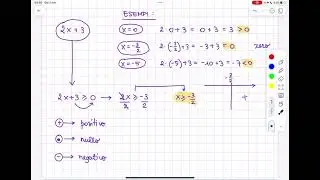 ESEMPI:
2x+3
x=0 2·0+3 = 0+3 = 3 >0
x=-3/2 2·(-3/2)+3 = -3+3 = 0 zero
x=-5 2·(-5)+3 = -10+3 = -7 <0
2x+3 ≥ 0 2x/2 ≥ -3/2 x ≥ -3/2
-3/2
+
+ → positivo
• → nullo
- → negativo